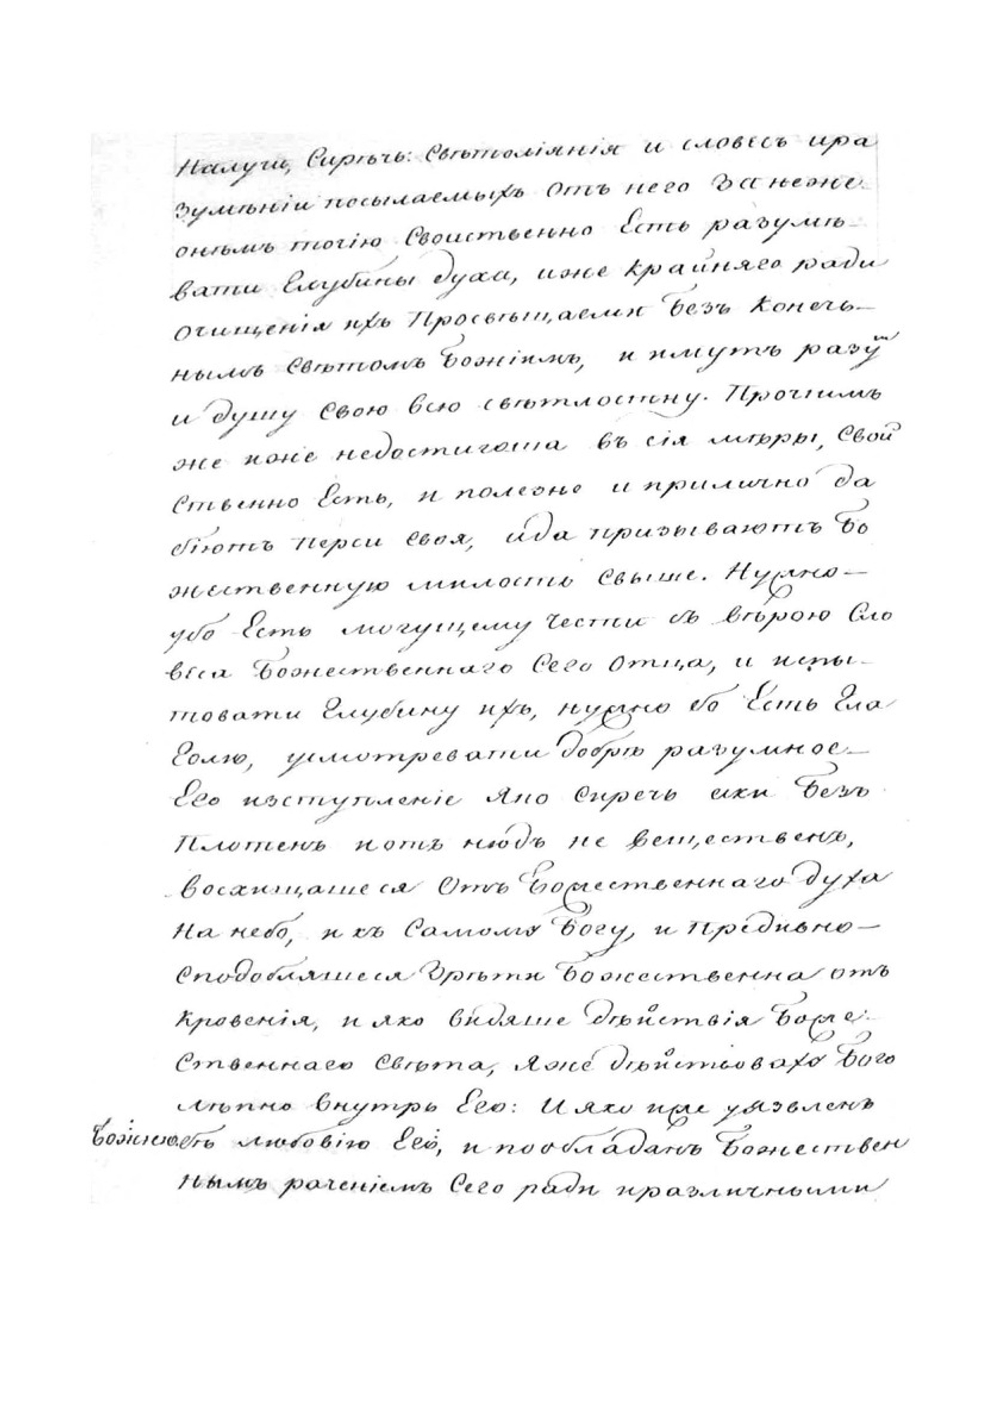 Налучи, Сирѣчь: Свѣтолїянїя и словесъ ира
зумѣнїи посылаемыхъ отъ него Занеже
онѣмъ точїю Своиственно Есть разумѣ-
вати Глубины духа, иже крайняго ради
очищенїя ихъ Просвѣщаеми Безъ конечь-
нымъ свѣтомъ Божїимъ, и имутъ разум
и душу свою всю свѣтлостну. Прочимъ
же иже недостигоша въ сїя мѣры, Свой
ственно Есть, и полезно и прилично да
бїютъ перси своя, ида призываютъ Бо
жественную милость свыше. Нужно-
убо Есть могущему чести съ вѣрою Сло
веса Божественнаго Сего Отца, и испы-
товати Глубину ихъ, нужно бо Есть Гла
Голю, усмотревати добрѣ разумное-
Его изступленїе Яко сиречь аки Безъ
Плотенъ иотъ нюдъ не веществень,
восхищашеся Отъ Божественнаго духа
На небо, и къ Самому Богу, и Предивно-
сподобляшеся Зрѣти Божественна отъ
кровенїя, и яко видяше дѣйствїя Боже:
ственнаго Свѣта, Яже дѣйствовахӯ Бого
лѣпно внутрь Его: И яко иже уязвленъ
Божиюесть любовїю Его, и пообладанъ Божествен
нымъ раченїемъ Сего ради иразличными